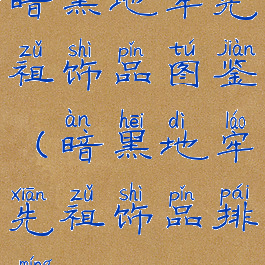 暗黑地牢先
zǔ shì pǐn tú jiàn
祖饰品图鉴
àn hēi dì láo
（暗黑地牢
xiān zǔ shì pǐn pái
先祖饰品排
míng